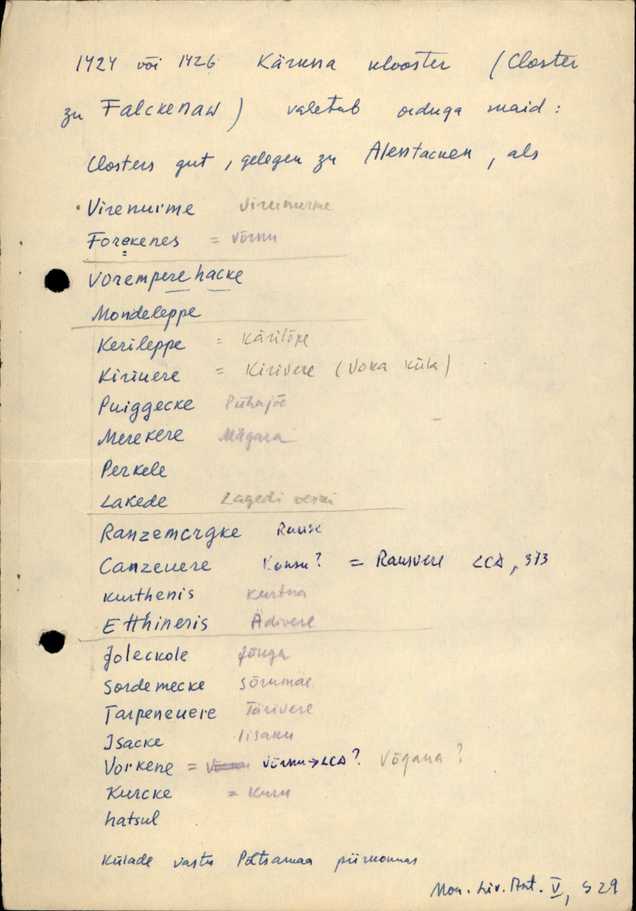 1424 või 1426 Kärkna klooster (Closter
zu Falckenaw) valetab orduga maid:
Closters gut, gelegen zu Alentacken, als
Virenurme Virunurme
Forekenes = Võrnu
Vorempere hacke
Mondeleppe
Kerileppe = Kärilõpe
Kiriuere = Kirivere (Voka küla)
Puiggecke Pühajõe
Merekere Mägara
Perkele
Lakede Lagedi veski
Ranzemergke Rausk
Canzeuere Konsu? = Rausvere LCD, 373
Kurthenis Kurtna
Etthineris Ädivere
Joleckole Jõuga
Sordemecke Sõrumäe
Tarpeneuere Tärivere
Isacke Iisaku
Vorkene = Võrnu→LCD? Võgana?
Kurcke = Kuru
hatsul
Külade vastu Põltsamaa piirkonnas
Mon. Liv. Ant. V, S 29